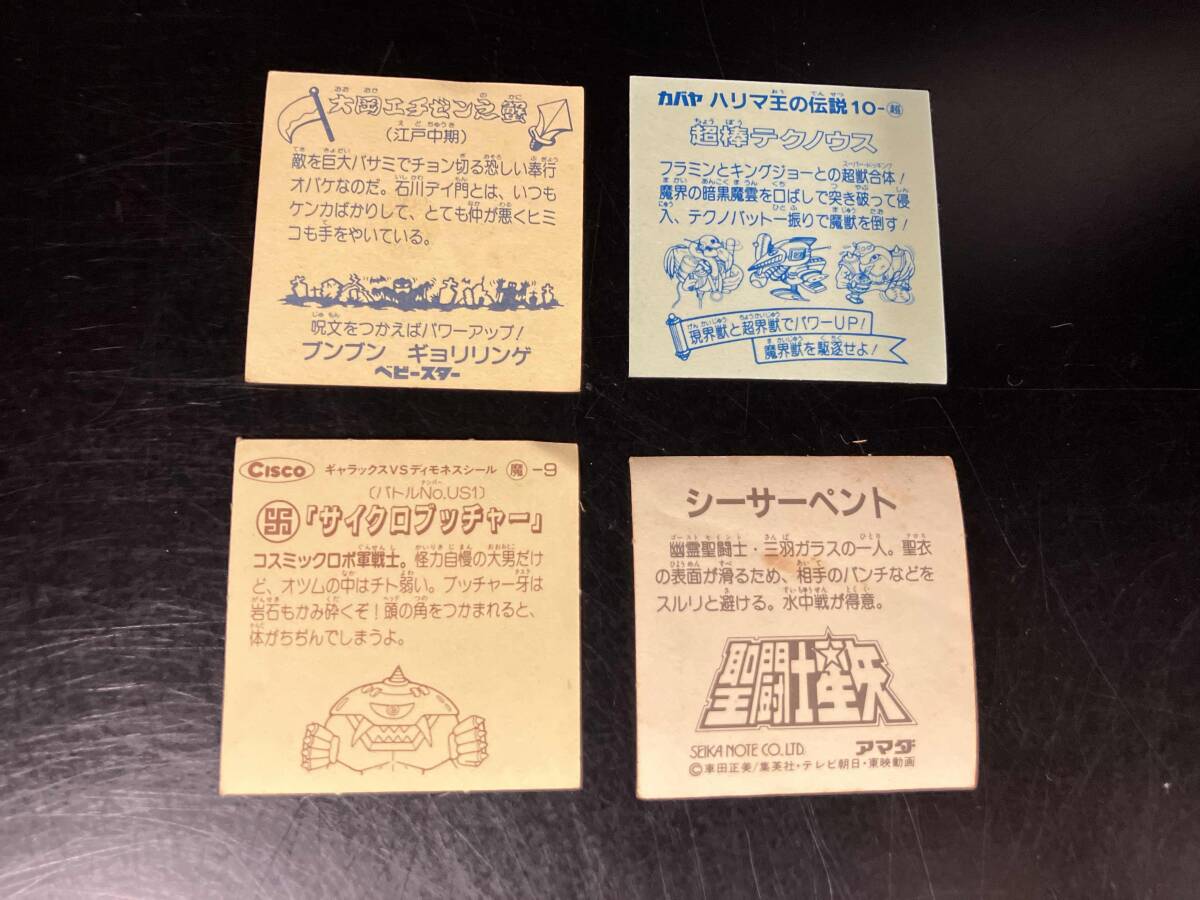 大岡エチゼン之蟹
(江戸中期)
敵を巨大バサミでチョン切る恐しい奉行
オバケなのだ。石川デイ門とは、いつも
ケンカばかりして、とても仲が悪くヒミ
コも手をやいている。
呪文をつかえばパワーアップ!
ブンブン ギョリリンゲ
ベビースター
カバヤ ハリマ王の伝説10-超
超棒テクノウス
フラミンとキングジョーとの超獣合体!
魔界の暗黒魔雲を口ばしで突き破って侵
入、テクノバット一振りで魔獣を倒す!
現界獣と超界獣でパワーUP!
魔界獣を駆逐せよ!
CISCO ギャラックスVSディモネスシール 魔-9
(バトルNo.US1)
卐「サイクロブッチャー」
コスミックロボ軍戦士。怪力自慢の大男だけ
ど、オツムの中はチト弱い。ブッチャー牙は
岩石もかみ砕くぞ!頭の角をつかまれると、
体がちぢんでしまうよ。
シーサーペント
幽霊聖闘士・三羽ガラスの一人。聖衣
の表面が滑るため、相手のパンチなどを
スルリと避ける。水中戦が得意。
聖闘士星矢
SEIKA NOTE CO.LTD. アマダ
©車田正美/集英社・テレビ朝日・東映動画